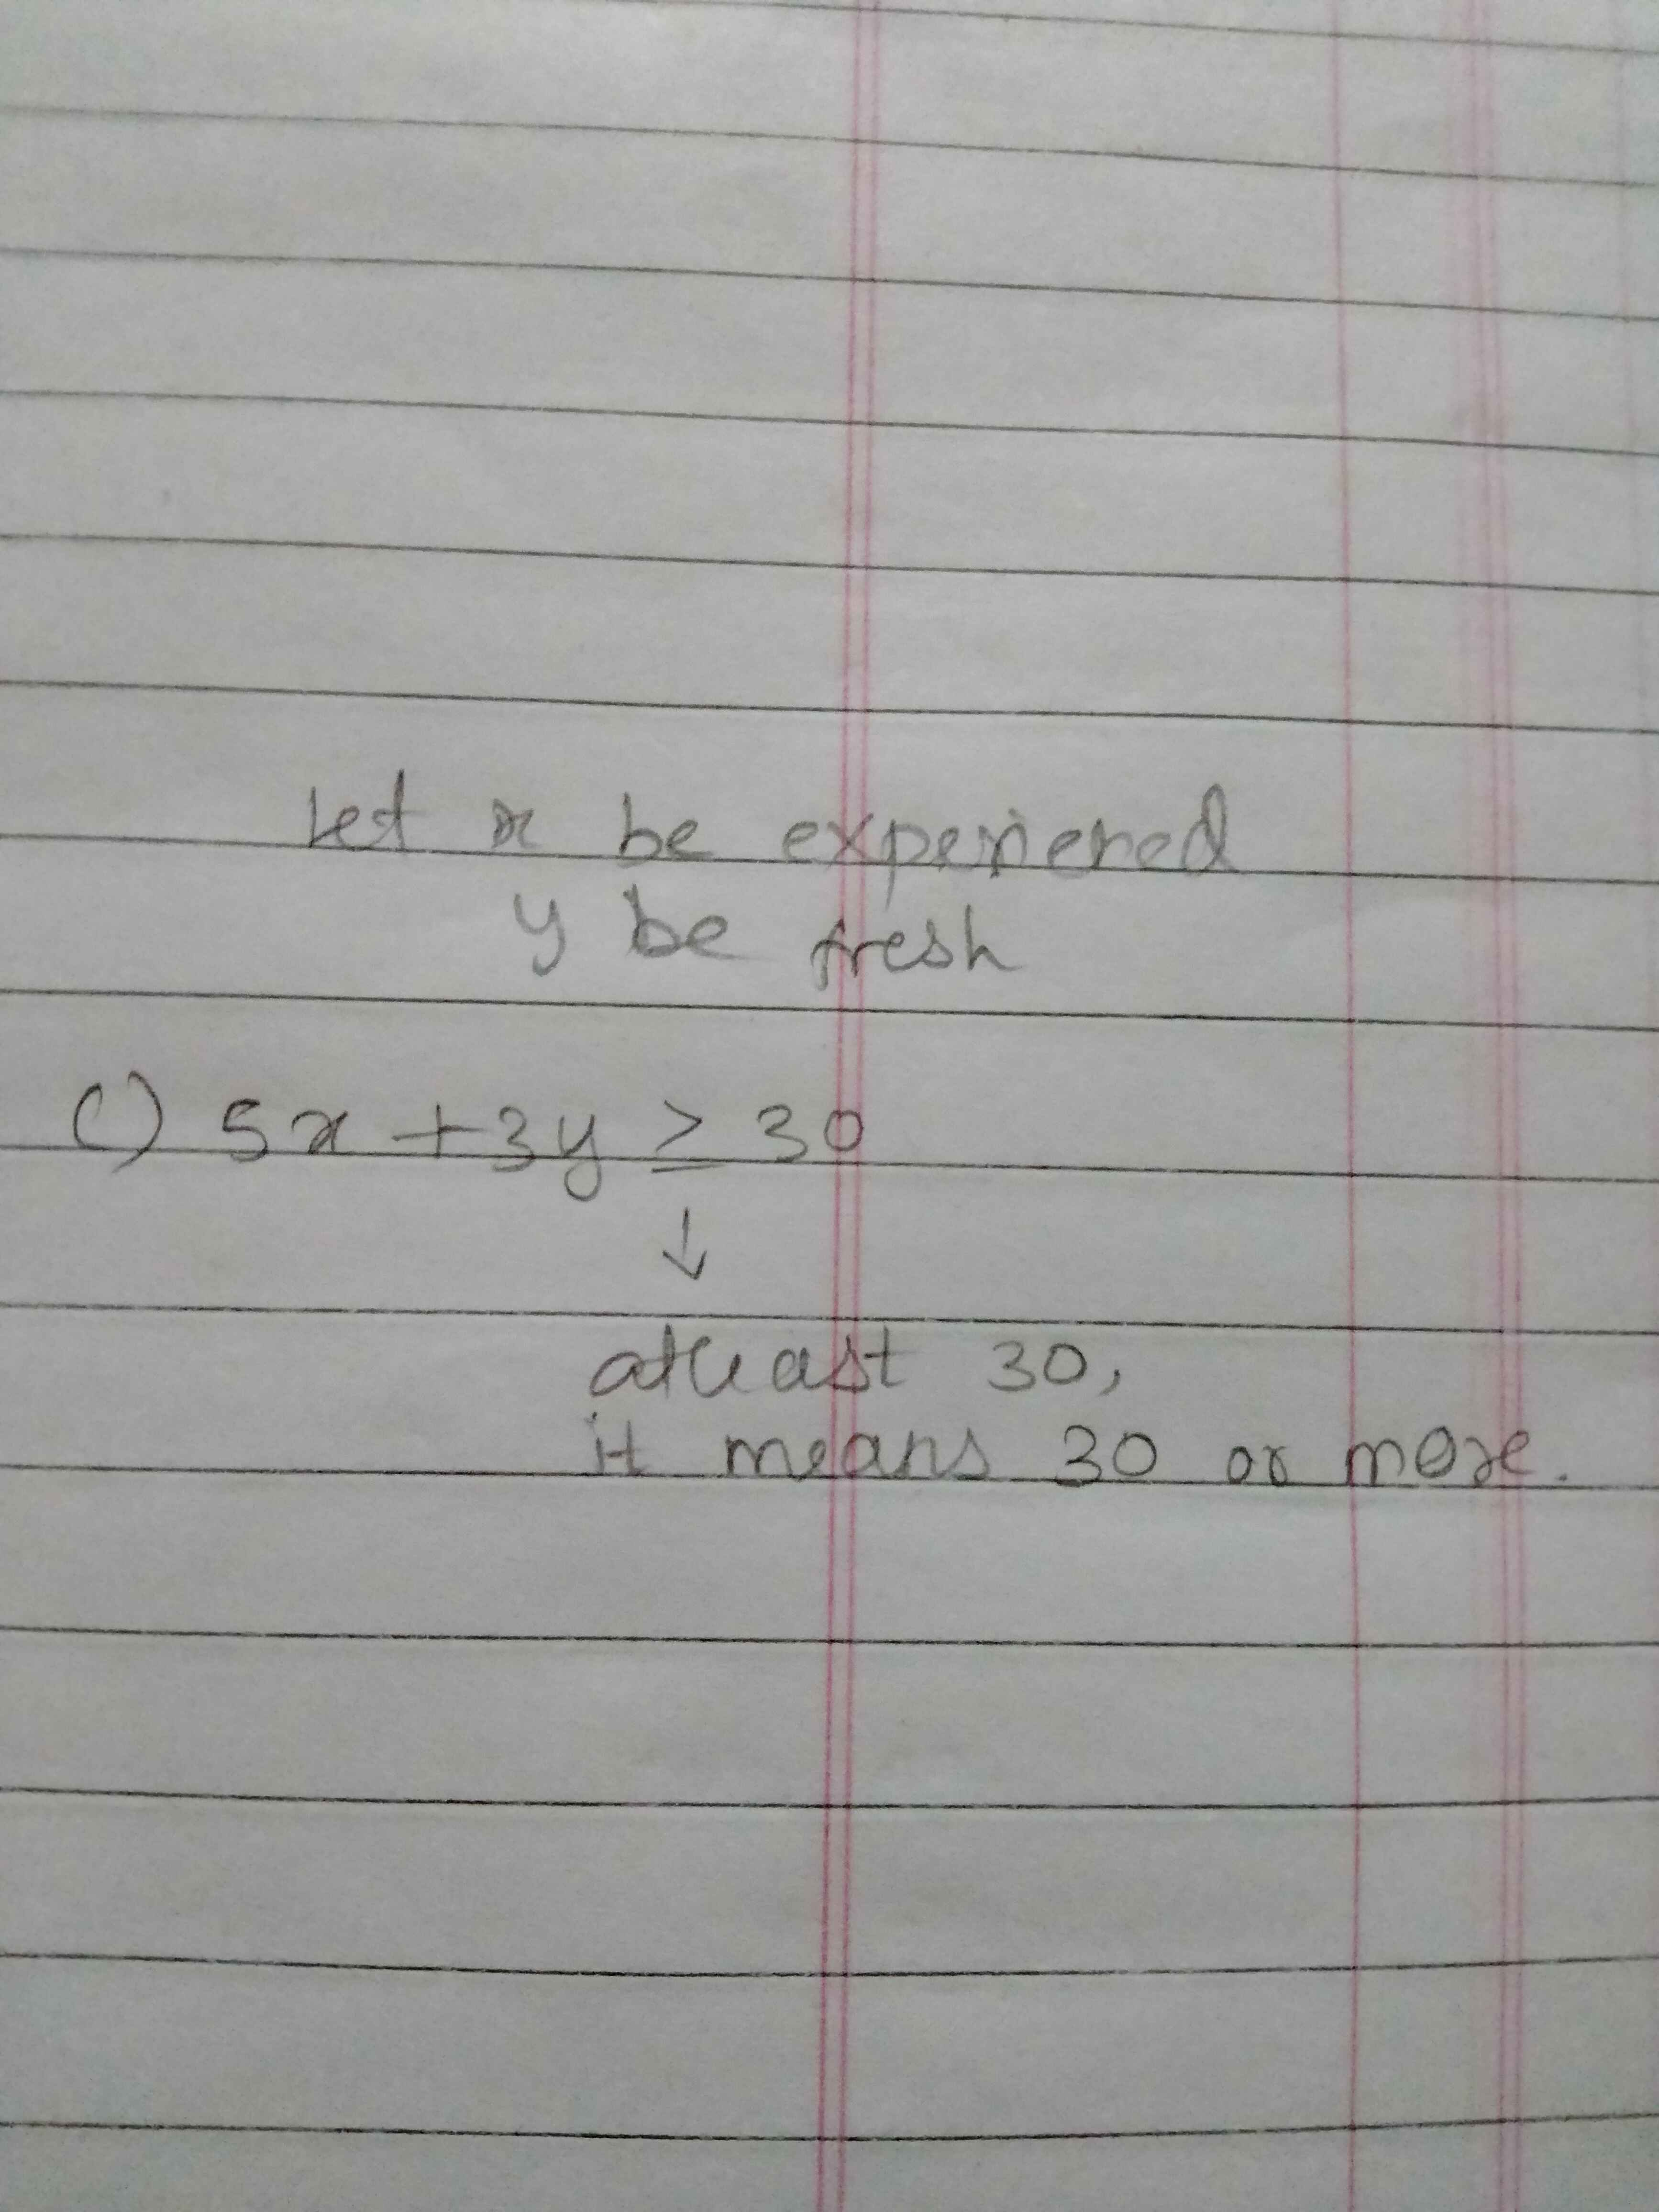 Let x be experienced
y be fresh
(i) 5x + 3y ≥ 30
↓
atleast 30,
it means 30 or more.